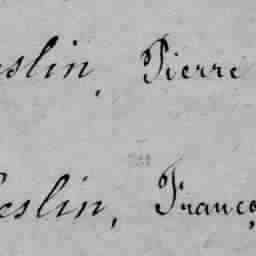 eslin, Pierre
eslin, Franço